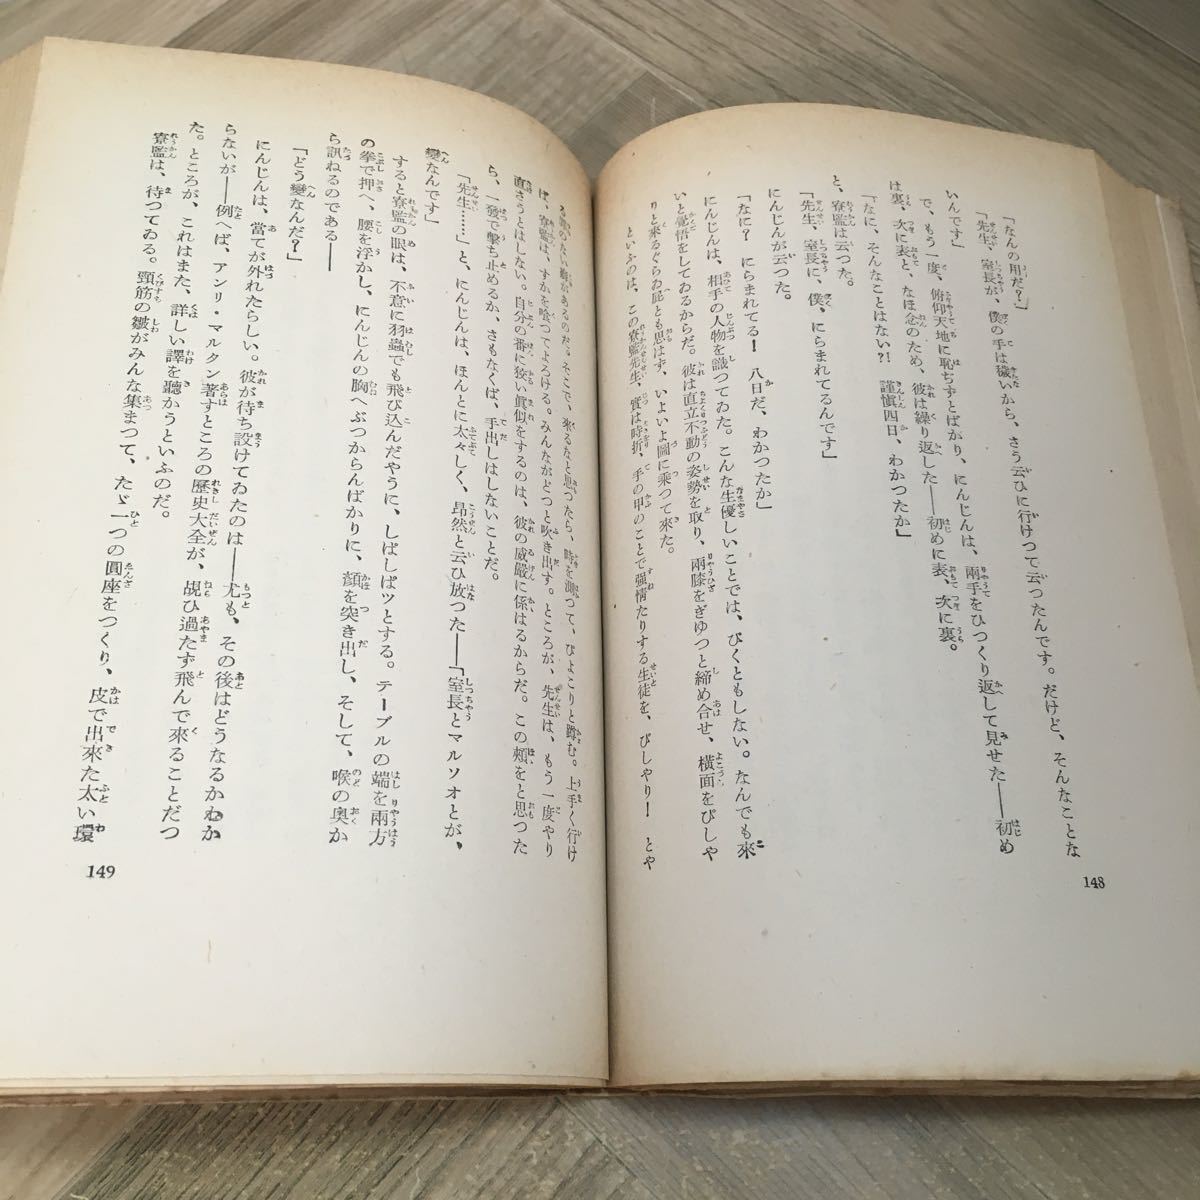 「なんの用だ?」
「先生、室長が、僕の手は穢いから、さう云ひに行けつて云つたんです。だけど、そんなことな
いんです」
で、もう一度、俯仰天地に恥ぢずとばかり、にんじんは、兩手をひつくり返して見せた――初め
は裏、次に表と、なほ念のため、彼は繰り返した――初めに表、次に裏。
「なに、そんなことはない?! 謹愼四日、わかつたか」
と、寮監は云つた。
「先生、室長に、僕、にらまれてるんです」
にんじんが云つた。
「なに? にらまれてる! 八日だ、わかつたか」
にんじんは、相手の人物を識つてゐた。こんな生優しいことでは、びくともしない。なんでも來
いと覺悟をしてゐるからだ。彼は直立不動の姿勢を取り、兩膝をぎゆつと締め合せ、橫面をぴしや
りと來るぐらゐ屁とも思はず、いよいよ圖に乘つて來た。
といふのは、この寮監先生、實は時折、手の甲のことで强情たりする生徒を、ぴしやり! とや
があるのだ。そこで、來るなと思つたら、時を測つて、ぴよこりと蹲む。上手く行け
ば、寮監は、すかを喰つてよろける。みんながどつと吹き出す。ところが、先生は、もう一度やり
直さうとはしない。自分の番に狡い眞似をするのは、彼の威嚴に係はるからだ。この頰をと思つた
ら、一發で擊ち止めるか、さもなくば、手出しはしないことだ。
「先生……」と、にんじんは、ほんとに太々しく、昂然と云ひ放つた――「室長とマルソオとが、
變なんです」
すると寮監の眼は、不意に羽蟲でも飛び込んだやうに、しぱしぱツとする。テーブルの端を兩方
の拳で押へ、腰を浮かし、にんじんの胸へぶつからんばかりに、顏を突き出し、そして、喉の奧か
ら訊ねるのである――
「どう變なんだ?」
にんじんは、當てが外れたらしい。彼が待ち設けてゐたのは――尤も、その後はどうなるかわか
らないが――例へば、アンリ・マルタン著すところの歷史大全が、覘ひ過たず飛んで來ることだつ
た。ところが、これはまた、詳しい譯を聽かうといふのだ。
寮監は、待つてゐる。頸筋の皺がみんな集まつて、たゞ一つの圓座をつくり、皮で出來た太い環
148
149